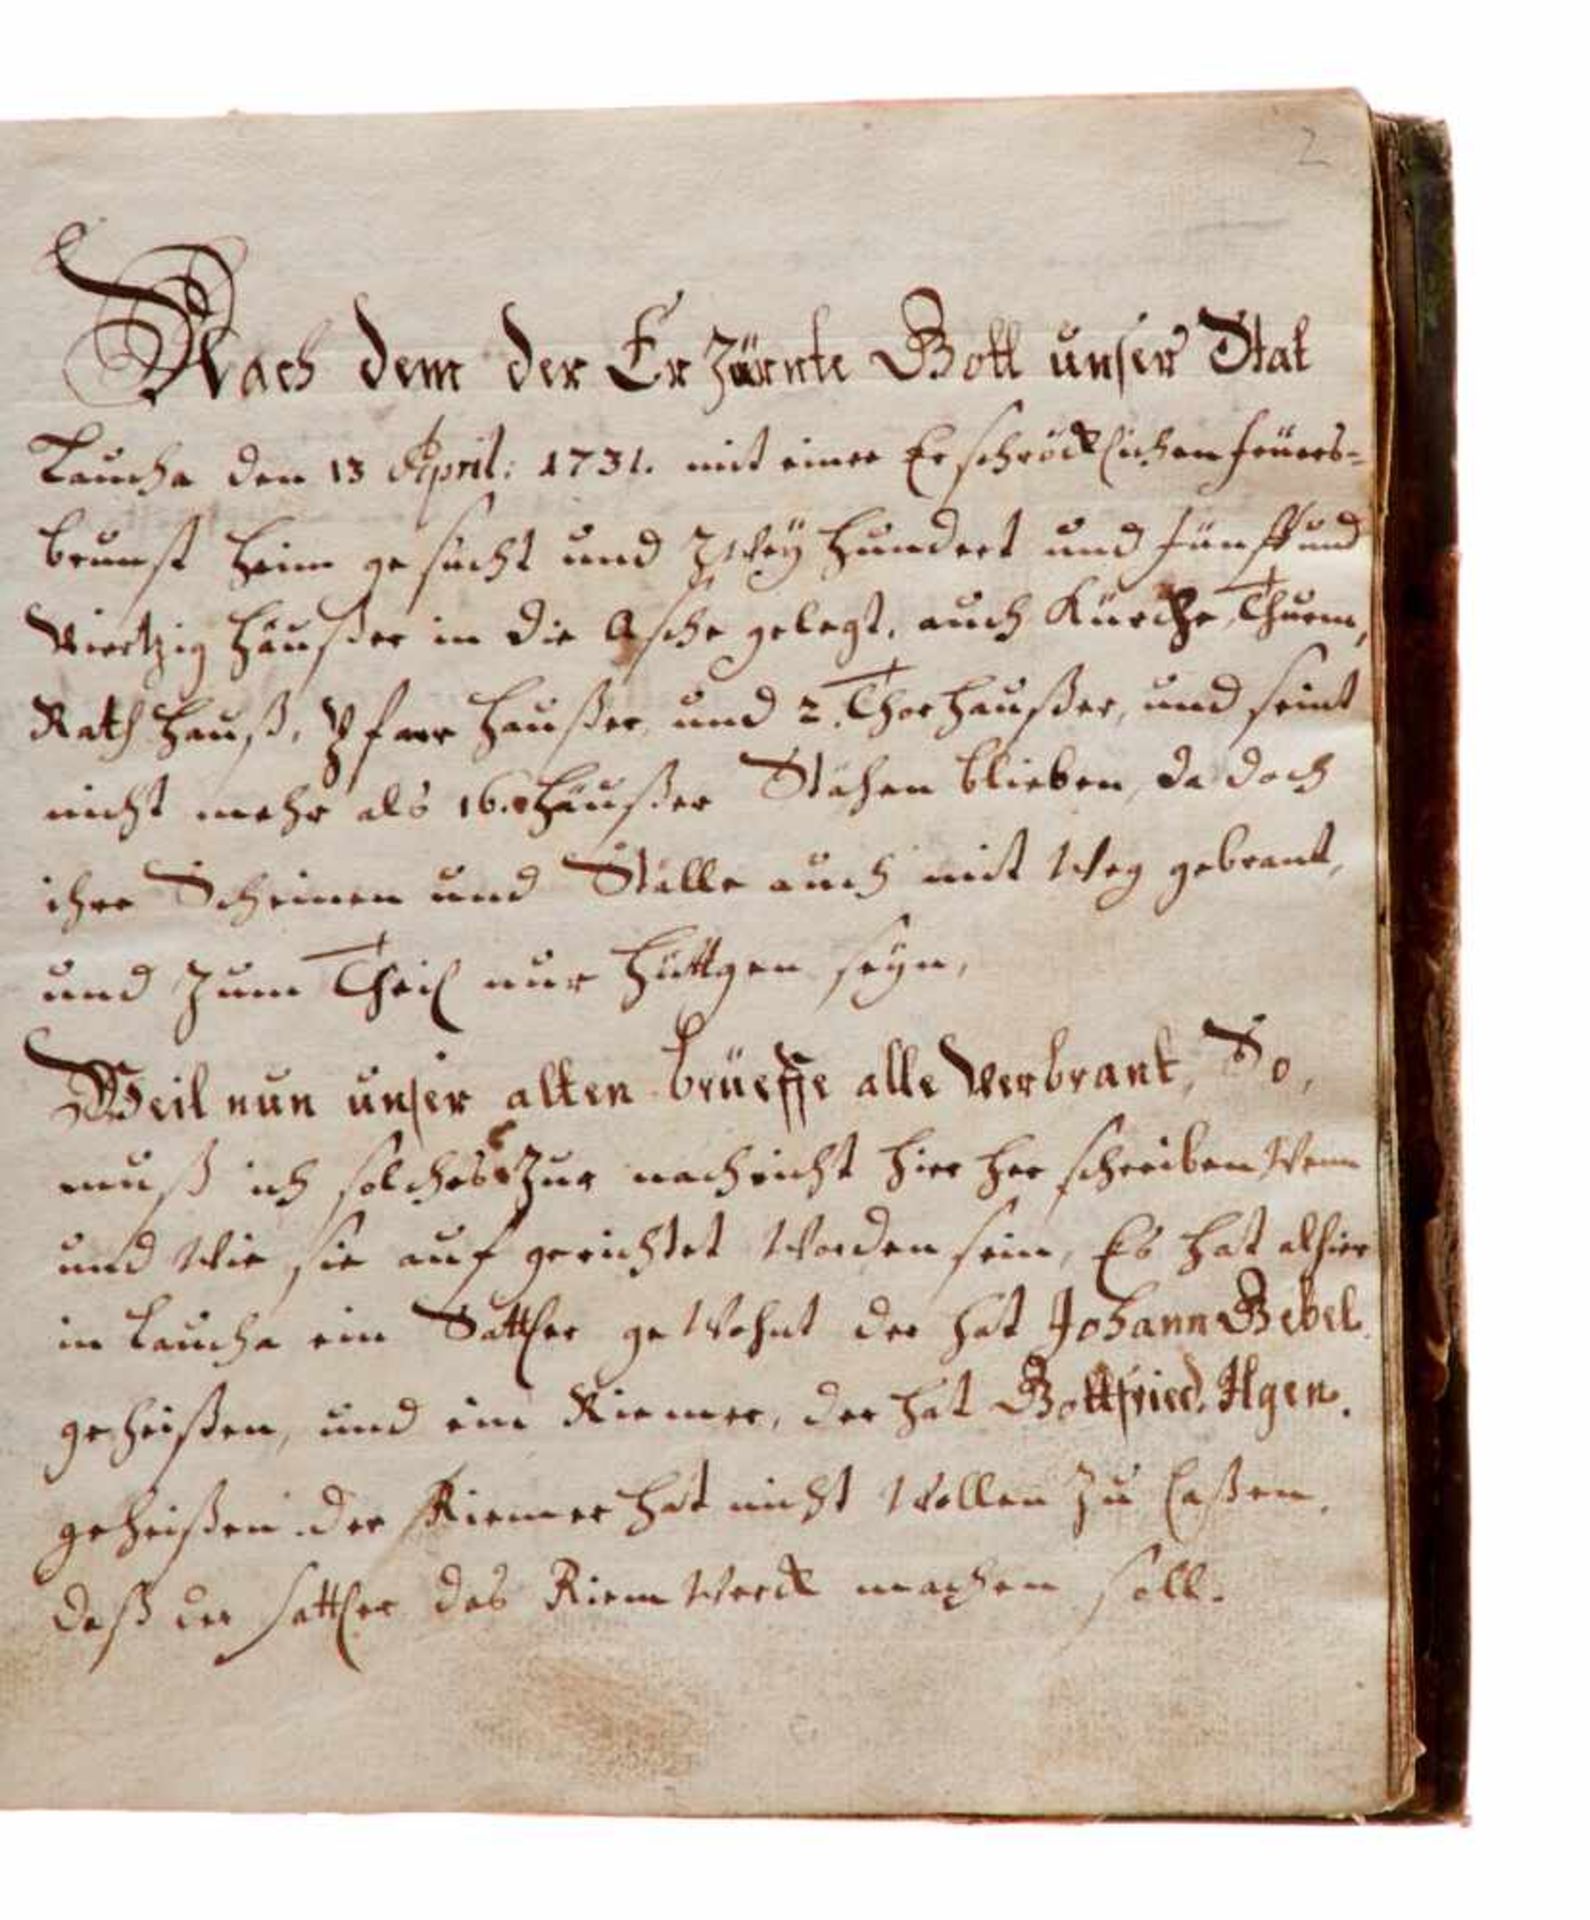 2
Nach dem der Er Zürnte Gott unser Stat
Laucha den 13 April: 1731. mit einer Erschröcklichen feuers-
brunst heim gesucht und Zwey hundert und fünff und
Viertzig häußer in die Asche gelegt, auch Kürche, Thurm,
Rath hauß, Pfarr haußer und 2. Thorhaußer, und seint
nicht mehr als 16. häußer Stähen blieben, da doch
ihre Scheinen und Ställe auch mit Weg gebrant,
und zum Theil nur hüttgen seyn,
Weil nun unser alten brüeffe alle Verbrant, So,
muß ich solches zur nachricht hier her schreiben Wenn
und Wie sie auf gerichtet Worden sein, Es hat alhier
in Laucha ein Sattler ge Wohnt der hat Johann Bebel
geheißen, und ein Riemer, der hat Gottfried Ilgen.
geheißen der Riemer hat nicht Wollen zu laßen,
daß der sattler das Riem Werck machen soll.